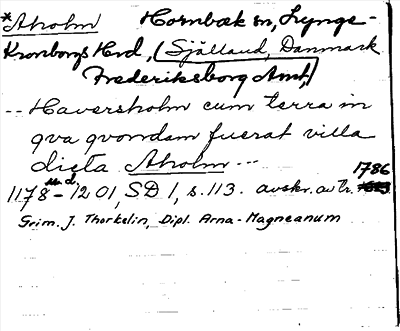 *Aholm Hornbæk sn, Lynge-
Kronborgs Hrd, (Själland, Danmark
Frederiksborg Amt,)
-- Haversholm cum terra in
qva qvondam fuerat villa
dicta Aholm ---
1178 - 1201, SD 1, s. 113. avskr. av tr. 1786
Grim. J. Thorkelin, Dipl. Arna-Magneanum